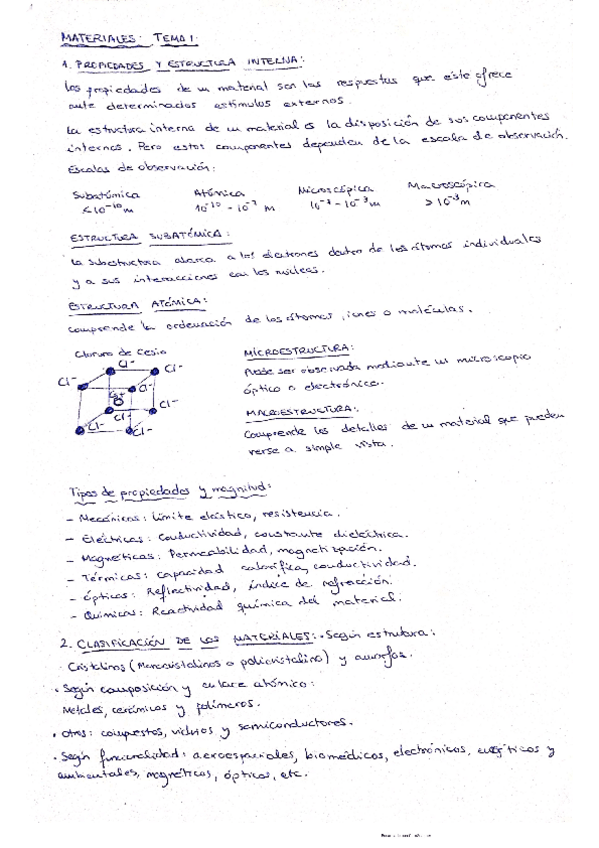 MATERIALES: TEMA 1:
1. PROPIEDADES Y ESTRUCTURA INTERNA:
Las propiedades de un material son las respuestas que éste ofrece
ante determinados estímulos externos.
La estructura interna de un material es la disposición de sus componentes
internos. Pero estos componentes dependen de la escala de observación.
Escalas de observación:
Subatómica Atómica Microscópica Macroscópica
<10⁻¹⁰ m 10⁻¹⁰ - 10⁻⁷ m 10⁻⁷ - 10⁻³ m > 10⁻³ m
ESTRUCTURA SUBATÓMICA:
La subestructura abarca a los electrones dentro de los átomos individuales
y a sus interacciones con los núcleos.
ESTRUCTURA ATÓMICA:
comprende la ordenación de los átomos, iones o moléculas.
Cloruro de Cesio
Cl⁻ Cl⁻
Cl⁻ Cl⁻
Cs⁺
Cl⁻ Cl⁻
Cl⁻ Cl⁻
MICROESTRUCTURA:
Puede ser observada mediante un microscopio
óptico o electrónico.
MACROESTRUCTURA:
Comprende los detalles de un material que pueden
verse a simple vista.
Tipos de propiedades y magnitud:
- Mecánicas: límite elástico, resistencia.
- Eléctricas: Conductividad, constante dieléctrica.
- Magnéticas: Permeabilidad, magnetización.
- Térmicas: capacidad calorífica, conductividad.
- Ópticas: Reflectividad, índice de refracción.
- Químicas: Reactividad química del material.
2. CLASIFICACIÓN DE LOS MATERIALES: · Según estrutura:
Cristalinos (Monocristalinos o policristalino) y amorfos.
· Según composición y enlace atómico:
Metales, cerámicos y polímeros.
· Otros: compuestos, vidrios y semiconductores.
· Según funcionalidad: aeroespaciales, biomédicos, electrónicos, energéticos y
ambientales, magnéticos, ópticos, etc.